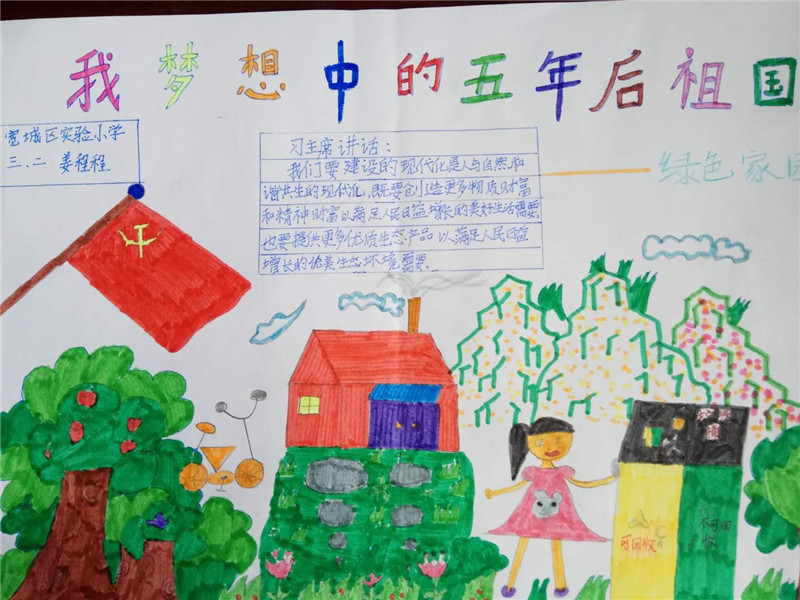 我梦想中的五年后祖国
宽城区实验小学
三.二 姜程程
习主席讲话:
我们要建设的现代化是人与自然和
谐共生的现代化,既要创造更多物质财富
和精神财富以满足人民日益增长的美好生活需要.
也要提供更多优质生态产品以满足人民日益
增长的优美生态环境需要.
绿色家园
可回收
不可回
收